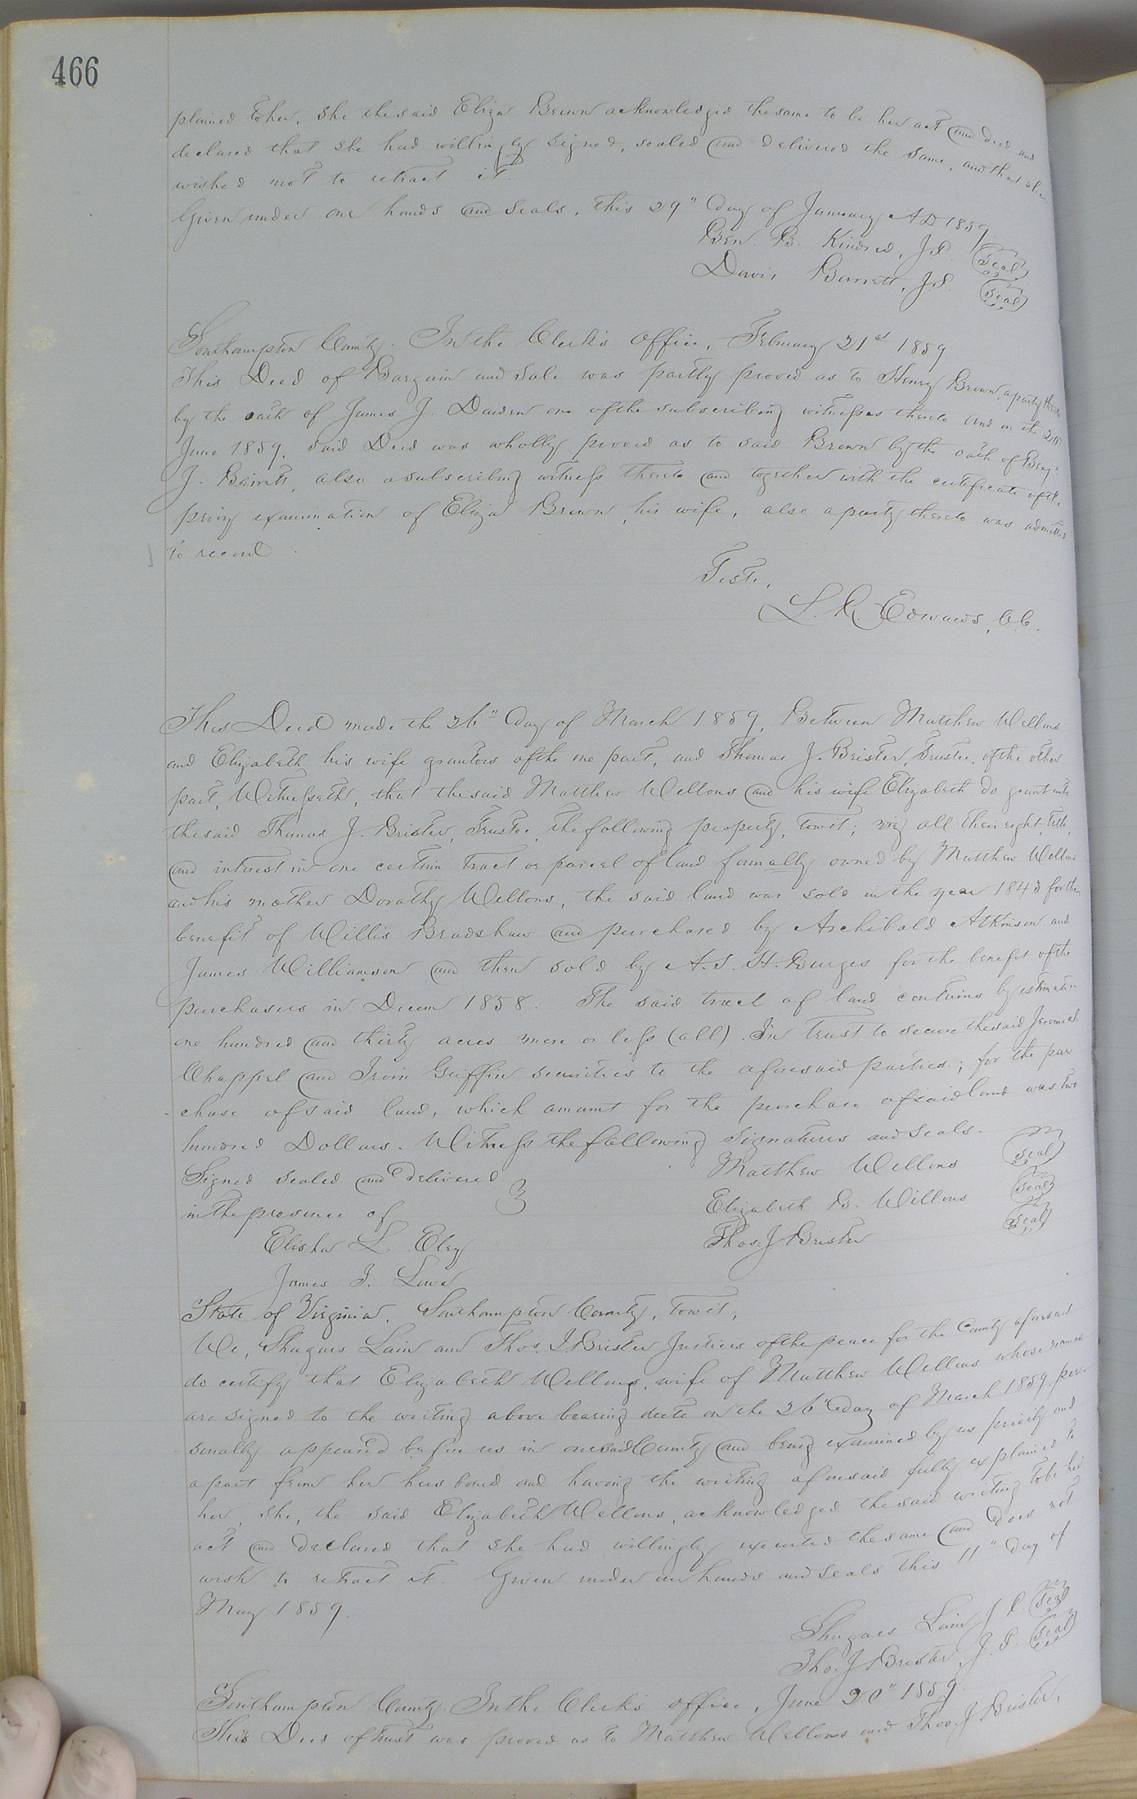 466
plained to her, she the said Eliza Brown acknowledged the same to be her act and deed and
declared that she had willingly signed, sealed and delivered the same, and that she
wished not to retract it.
Given under our hands and seals, this 29" day of January AD 1859.
Ben. B. Kindred, J.P. (Seal)
Davis Barrett, J.P. (Seal)
Southampton County. In the Clerk's Office, February 21st 1859
This Deed of Bargain and Sale was partly proved as to Henry Brown, a party thereto
by the oath of James J. Darden one of the subscribing witnesses thereto and on the
June 1859, said Deed was wholly proved as to said Brown by the oath of Benj:
J. Barrett, also a subscribing witness thereto and together with the certificate of the
privy examination of Eliza Brown, his wife, also a party thereto was admitted
to record.
Teste,
L. R. Edwards, C.C.
This Deed made the 26" day of March 1859, Between Matthew Wellons
and Elizabeth his wife grantors of the one part, and Thomas J. Brister, Trustee, of the other
part, Witnesseth, that the said Matthew Wellons and his wife Elizabeth do grant unto
the said Thomas J. Brister, Trustee, the following property, towit; viz all their right, title,
and interest in one certain tract or parcel of land formally owned by Matthew Wellons
and his mother Dorothy Wellons, the said land was sold in the year 1843 for the
benefit of Willis Bradshaw and purchased by Archibald Atkinson and
James Williamson and then sold by A. S. H. Burges for the benefit of the
purchasers in Decem 1858. The said tract of land contains by estimation
one hundred and thirty acres more or less (all). In trust to secure the said Jeremiah
Chappel and Irvin Griffin securities to the aforesaid parties; for the pur
chase of said land, which amount for the purchase of said land was two
hundred Dollars. Witness the following signatures and seals.
Signed sealed and delivered Matthew Wellons (Seal)
in the presence of Elizabeth B. Wellons (Seal)
Elisha L. Eley Thos. J Brister (Seal)
James J. Lowe
State of Virginia, Southampton County, towit,
We, Shugars Lain and Thos. J Brister Justices of the peace for the County aforesaid
do certify that Elizabeth Wellons, wife of Matthew Wellons whose names
are signed to the writing above bearing date on the 26" day of March 1859, per-
sonally appeared before us in our said County and being examined by us privily and
apart from her husband and having the writing aforesaid fully explained to
her, she, the said Elizabeth Wellons, acknowledged the said writing to be her
act and declared that she had willingly executed the same and does not
wish to retract it. Given under our hands and seals this 11" day of
May 1859.
Shugars Lain J.P. (Seal)
Tho. J Brister, J.P. (Seal)
Southampton County In the Clerk's office, June 20" 1859
This Deed of trust was proved as to Matthew Wellons and Thos. J Brister,